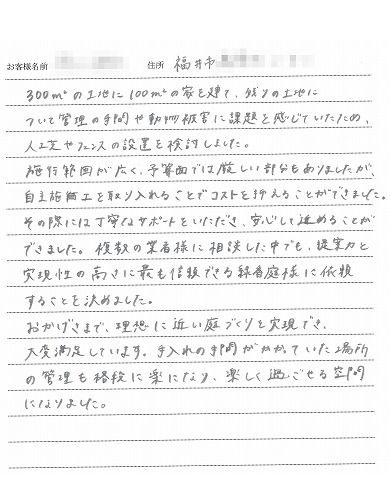 お客様名前 住所 福井市
300m²の土地に100m²の家を建て、残りの土地に
ついて管理の手間や動物被害に課題を感じていたため、
人工芝やフェンスの設置を検討しました。
施行範囲が広く、予算面では厳しい部分もありましたが、
自主施工を取り入れることでコストを抑えることができました。
その際には丁寧なサポートをいただき、安心して進めることが
できました。複数の業者様に相談した中でも、提案力と
実現性の高さに最も信頼できる 庭様に依頼
することを決めました。
おかげさまで、理想に近い庭づくりを実現でき、
大変満足しています。手入れの手間がかかっていた場所
の管理も格段に楽になり、楽しく過ごせる空間
になりました。